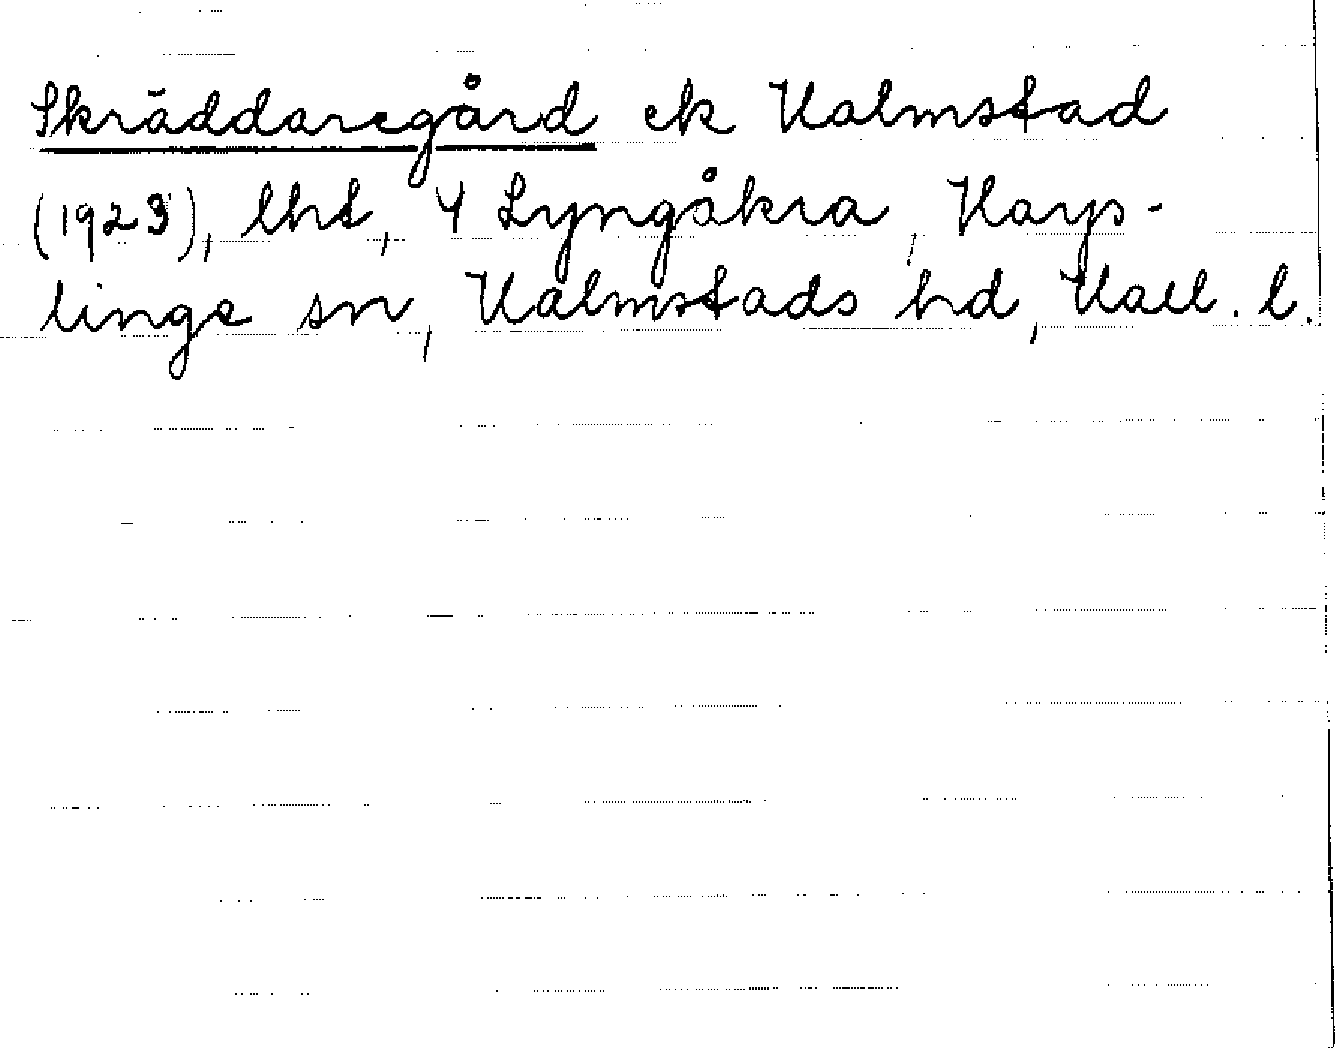 Skräddaregård ek Halmstad
(1923), lht, 4 Lyngåkra, Harp-
linge sn, Halmstads hd, Hall. l.